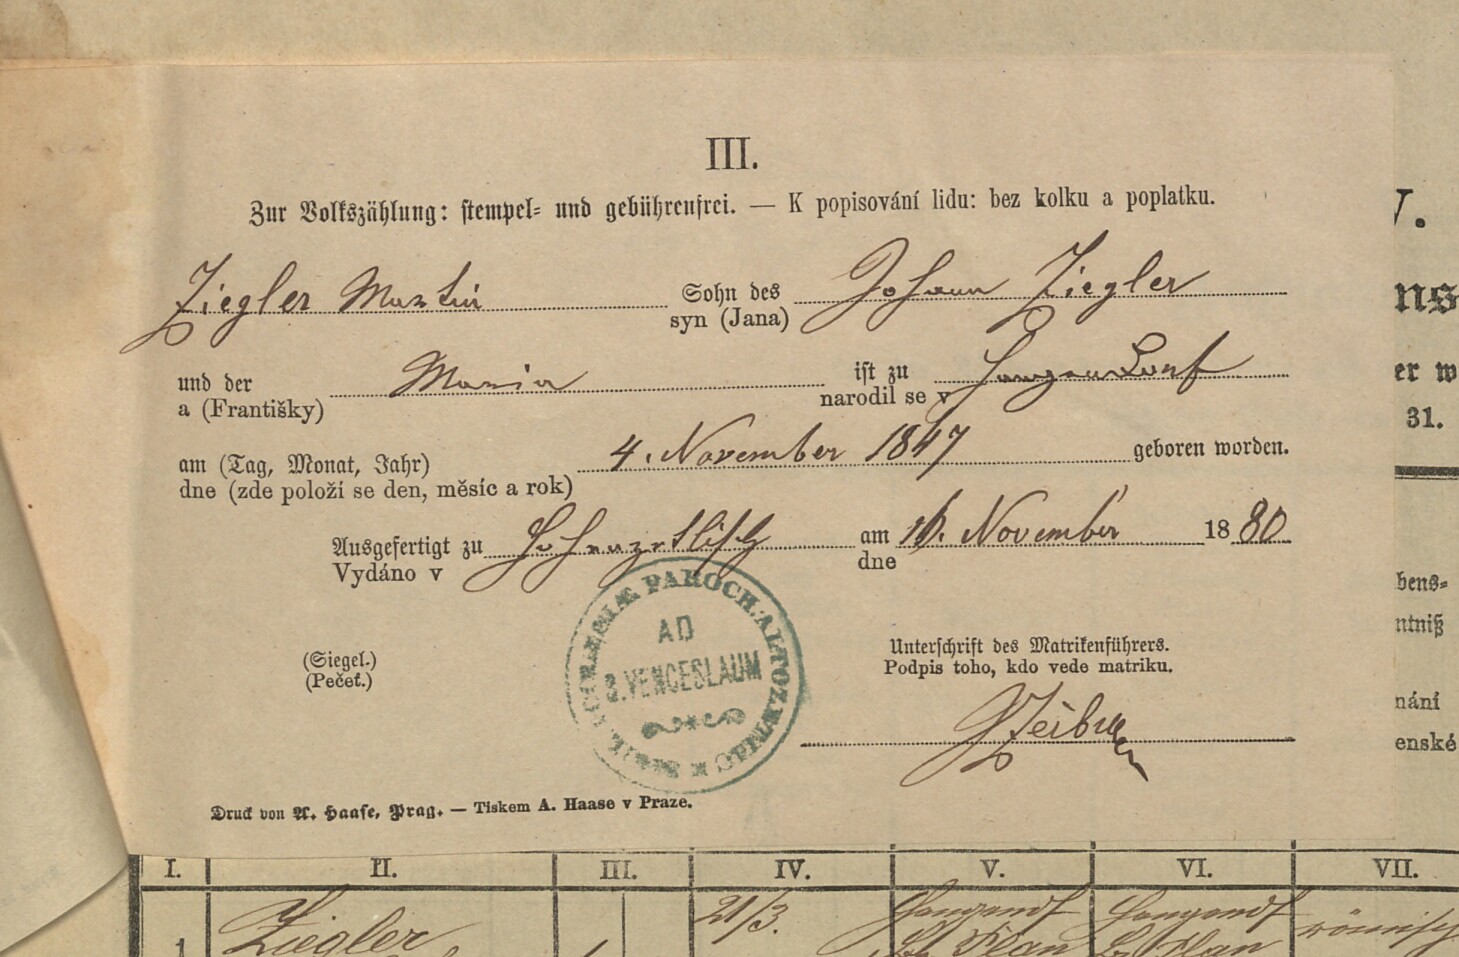 III.
Zur Volkszählung: stempel= und gebührenfrei. — K popisování lidu: bez kolku a poplatku.
Ziegler Martin Sohn des Johann Ziegler
syn (Jana)
und der Maria ist zu Langendorf
a (Františky) narodil se v
am (Tag, Monat, Jahr) 4. November 1847 geboren worden.
dne (zde položí se den, měsíc a rok)
Ausgefertigt zu Hohenzetlisch am 16. November 1880
Vydáno v dne
PAROCH. ALTOZETLIC
AD
S. VENCESLAUM
(Siegel.) Unterschrift des Matrikenführers.
(Pečeť.) Podpis toho, kdo vede matriku.
Druck von A. Haase, Prag. — Tiskem A. Haase v Praze.
V.
ns
er w
31.
bens=
ntniß
nání
enské
I. II. III. IV. V. VI. VII.
1 Ziegler 21/3. Langendf Langendf römisch
Bz Plan Bz Plan